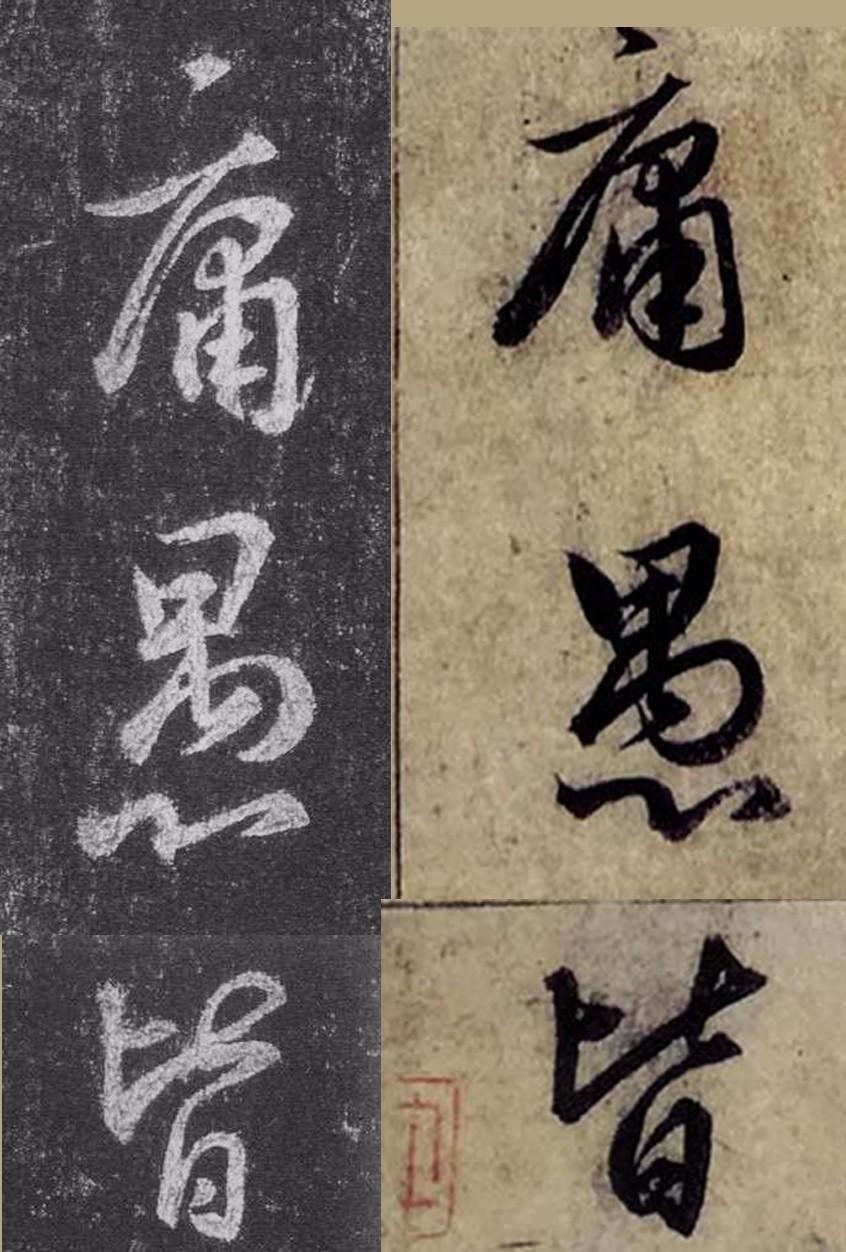 庸愚皆
庸愚皆